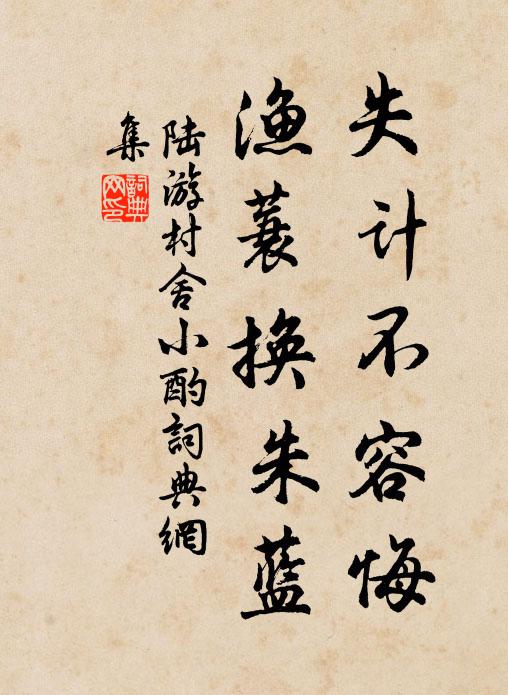 失计不容悔
渔蓑换朱蓝
陆游村舍小酌詞典網
集
詞典网印